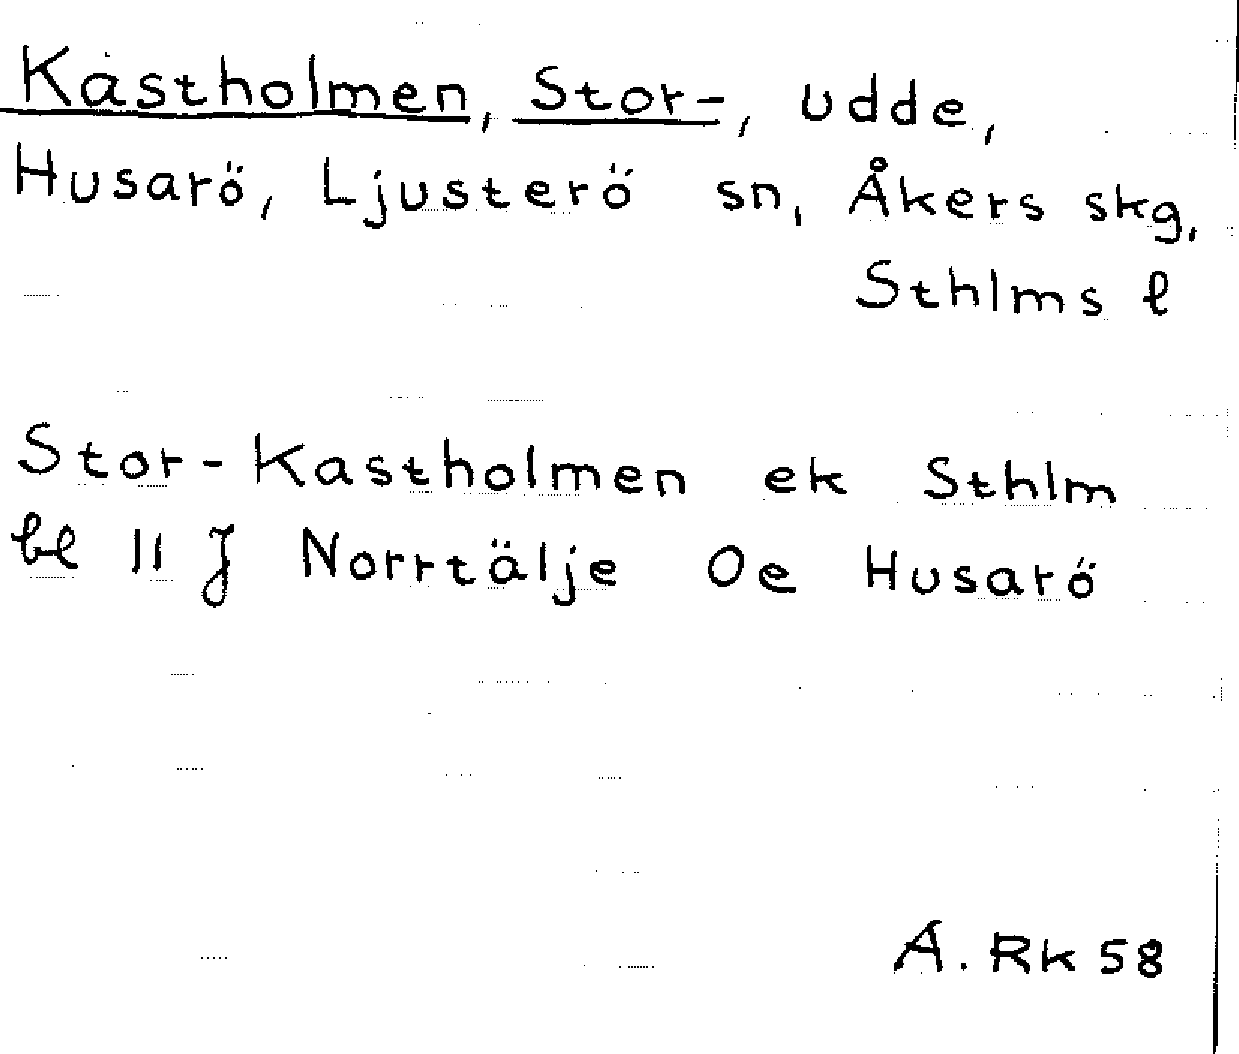 Kastholmen, Stor-, udde,
Husarö, Ljusterö sn, Åkers skg,
Sthlms l
Stor-Kastholmen ek Sthlm
bl 11 J Norrtälje Oe Husarö
A. Rk 58